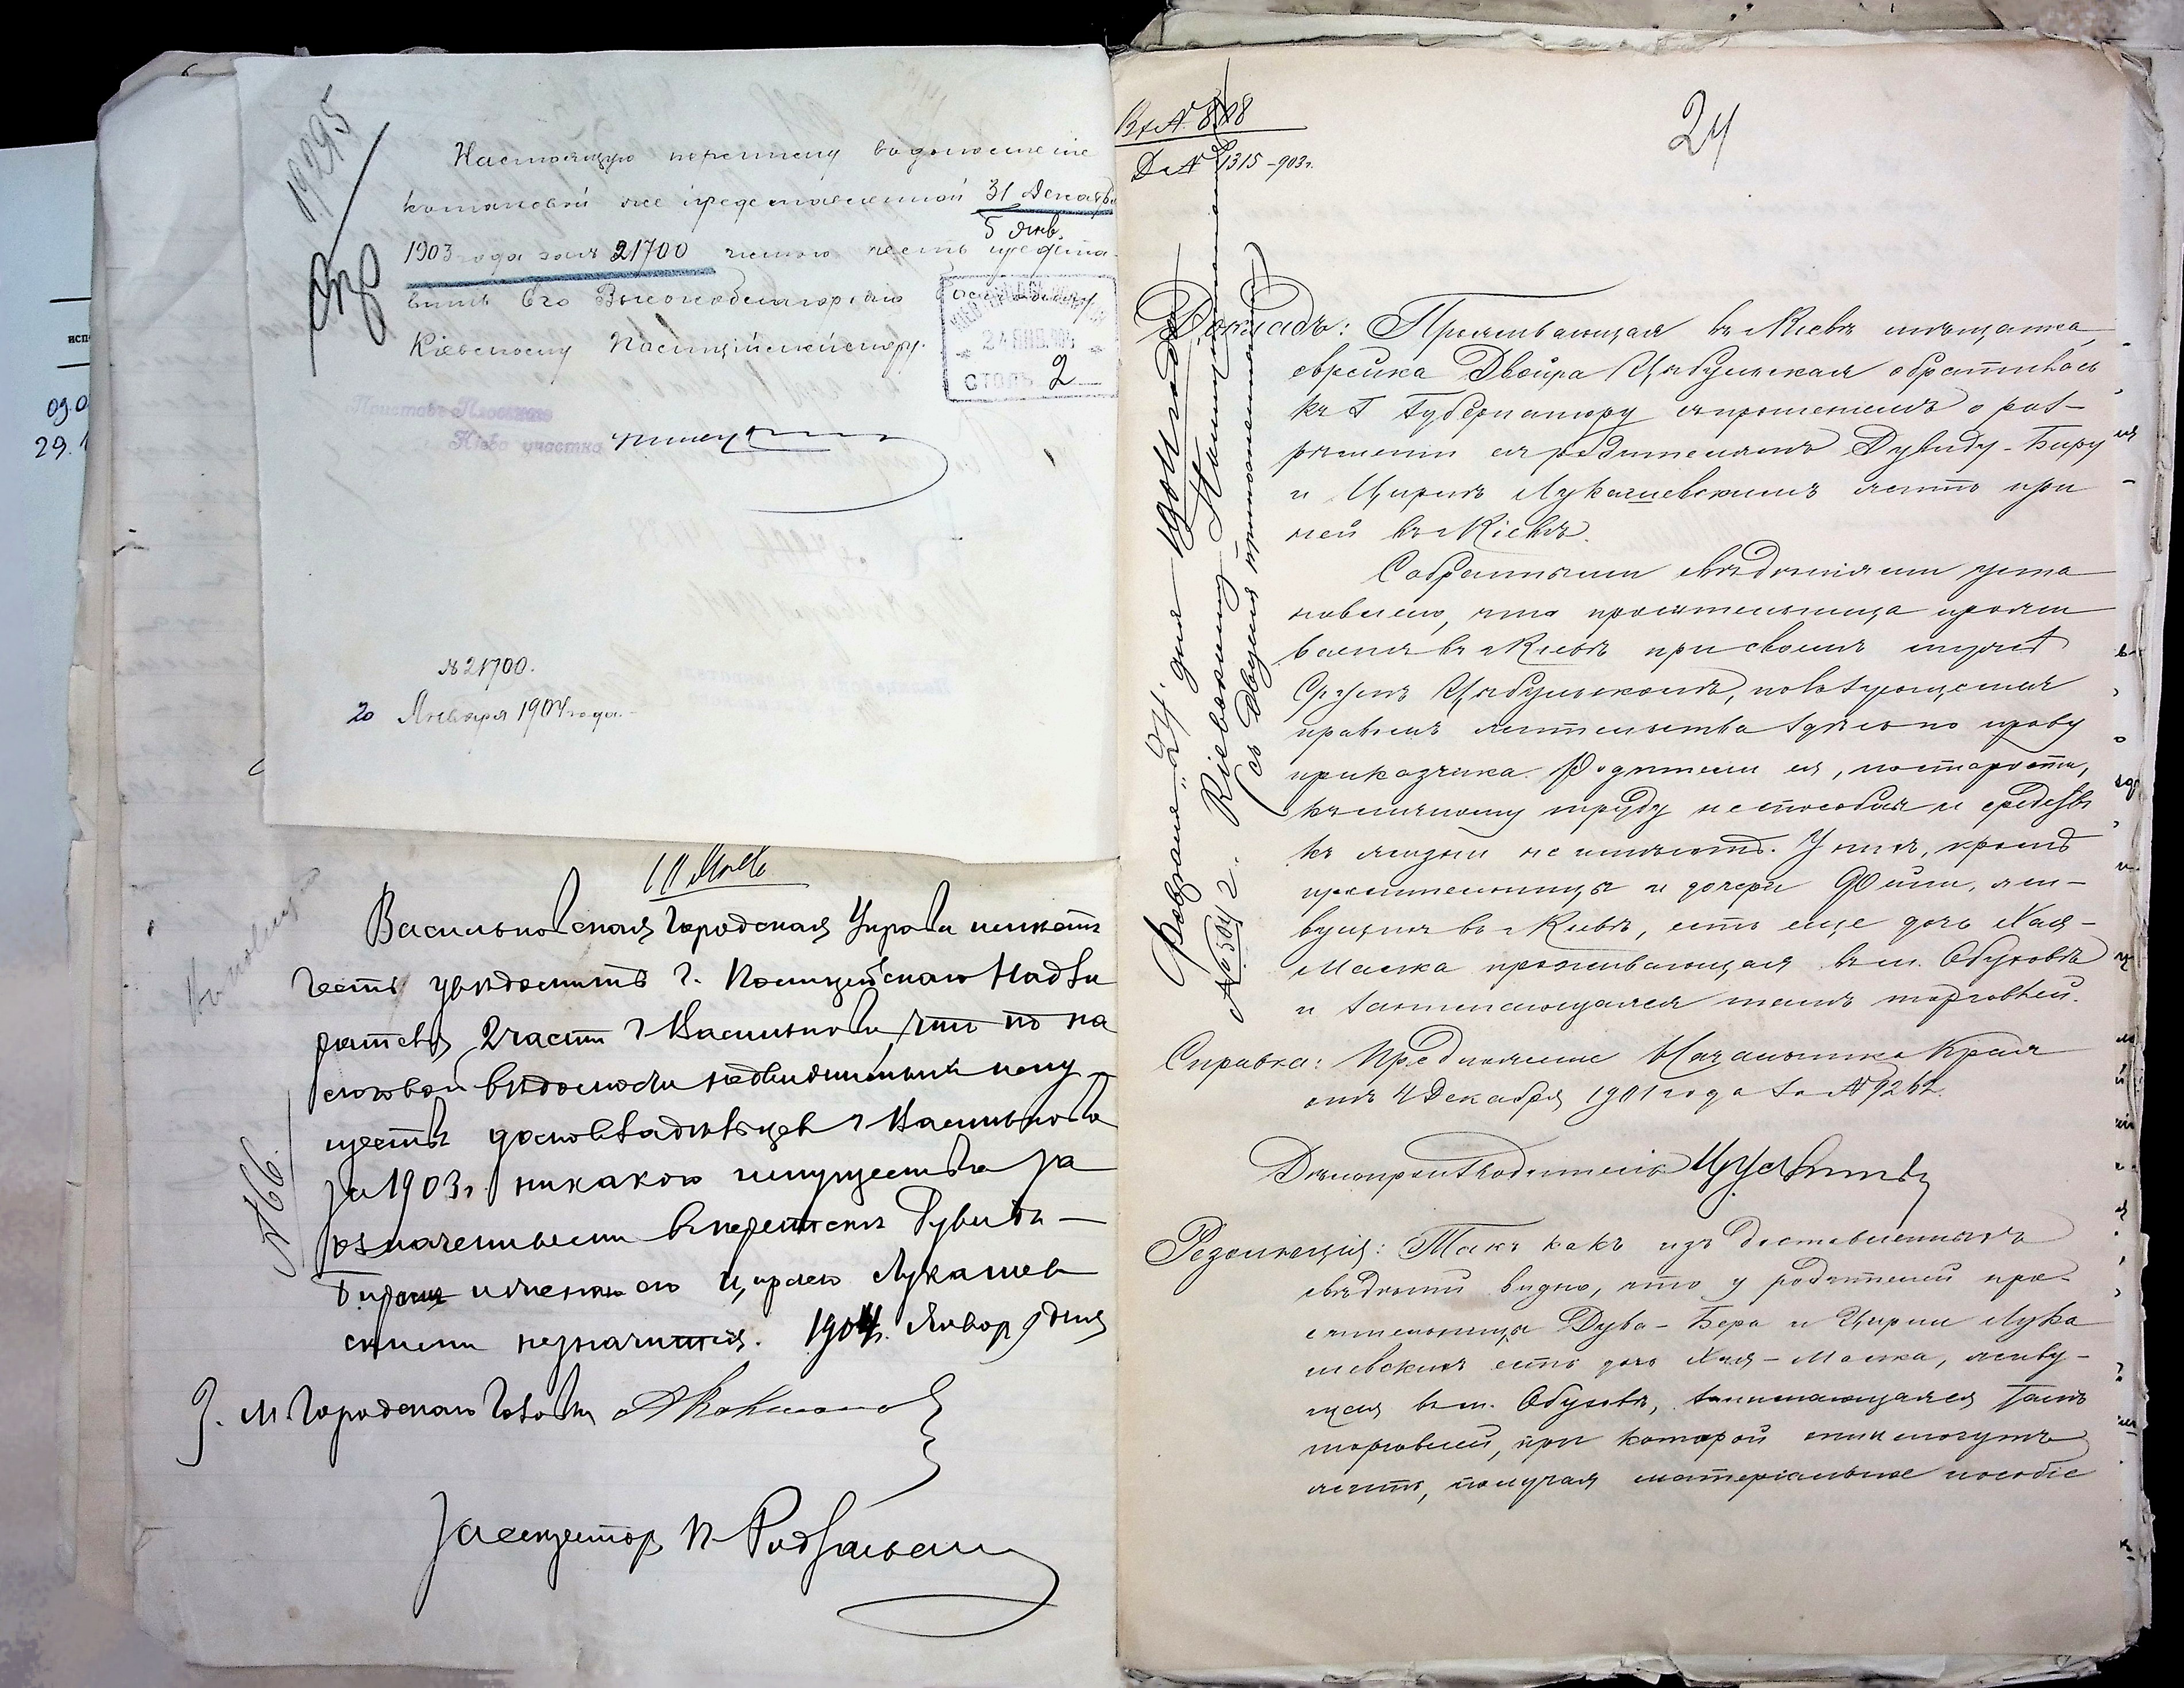 19295
Настоящую переписку
31 Декабря
5 Янв.
1903 года за № 21700 имею честь предста-
вить Его Высокоблагородію Господину
Кіевскому Полицеймейстеру.
24 ЯНВ. 904
СТОЛЪ 2
Приставъ Плоскаго
Кіев. участка
№ 21700.
20 Января 1904 года.
Васильковская Городская Управа имѣетъ
честь увѣдомить г. Полицейскаго Надзи
рателя 2 части г Василькова, что по на
логовой вѣдомости недвижимыхъ иму-
ществъ домовладѣльцевъ г Василькова
за 1903 г. никакого имущества за
означенными въ перепискѣ Дувидъ-
Беромъ и женою его Цирлею Лукашев
скими не значится. 1904 г. Январ 9 дня
№ 66.
З. М. Городского Головы
За секретар
Вх № 808
Д № 1315-903 г.
24
Февраля „24“ дня 1904 года
№ 504/2. Кіевскому Полицеймейстеру
(съ двумя приложеніями)
Докладъ: Проживающая въ Кіевѣ мѣщанка,
еврейка Двойра Цыбульская обратилась
къ Г Губернатору съ прошеніемъ о раз-
рѣшеніи ея родителямъ Дувиду-Беру
и Цирлѣ Лукашевскимъ жить при
ней въ Кіевѣ.
Собранными свѣдѣніями уста
новлено, что просительница прожи
ваетъ въ Кіевѣ при своемъ мужѣ
Срулѣ Цыбульскомъ, пользующемся
правомъ жительства здѣсь по праву
приказчика. Родители ея, по старости,
къ личному труду неспособны и средствъ
къ жизни не имѣютъ. У нихъ, кромѣ
просительницы и дочери Фейги, жи-
вущихъ въ Кіевѣ, есть еще дочь Хая-
Малка проживающая въ м. Обуховѣ
и занимающаяся тамъ торговлей.
Справка: Предложеніе Начальника Края
отъ 4 Декабря 1901 года за № 9262.
Дѣлопроизводитель
Резолюція: Такъ какъ изъ доставленныхъ
свѣдѣній видно, что у родителей про-
сительницы Дува-Бера и Цирли Лука
шевскихъ есть дочь Хая-Малка, живу-
щая въ м. Обуховѣ, занимающаяся тамъ
торговлей, при которой они могутъ
жить, получая матеріальное пособіе